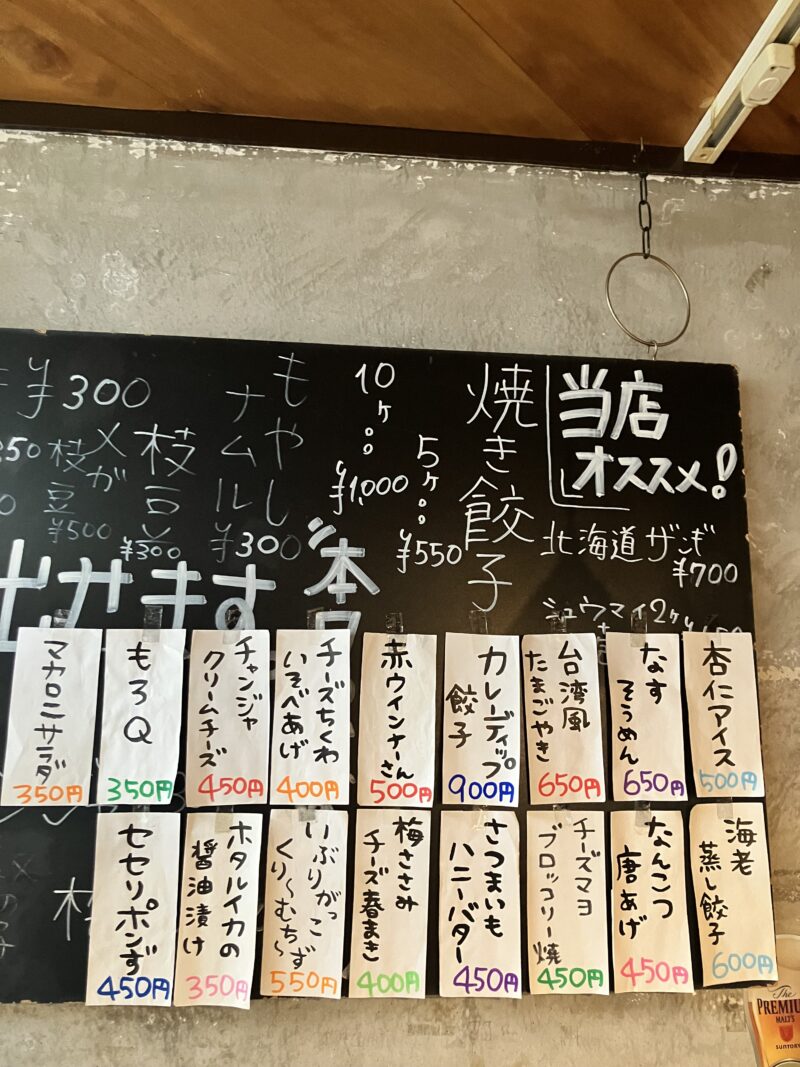 当店
オススメ!
北海道ザンギ
¥700
シュウマイ2ヶ
焼き餃子
5ヶ
¥550
10ヶ
¥1,000
もやし
ナムル
¥300
枝豆
¥300
枝豆
¥500
¥300
杏仁アイス
500円
なす
そうめん
650円
台湾風
たまごやき
650円
カレーディップ
餃子
900円
赤ウインナーさん
500円
チーズちくわ
いそべあげ
400円
チャンジャ
クリームチーズ
450円
もろQ
350円
マカロニサラダ
350円
海老
蒸し餃子
600円
なんこつ
唐あげ
450円
チーズマヨ
ブロッコリー焼
450円
さつまいも
ハニーバター
450円
梅ささみ
チーズ春まき
400円
いぶりがっこ
くり〜むち〜ず
550円
ホタルイカの
醤油漬け
350円
セセリポンず
450円
The
PREMIUM
MALT'S
SUNTORY